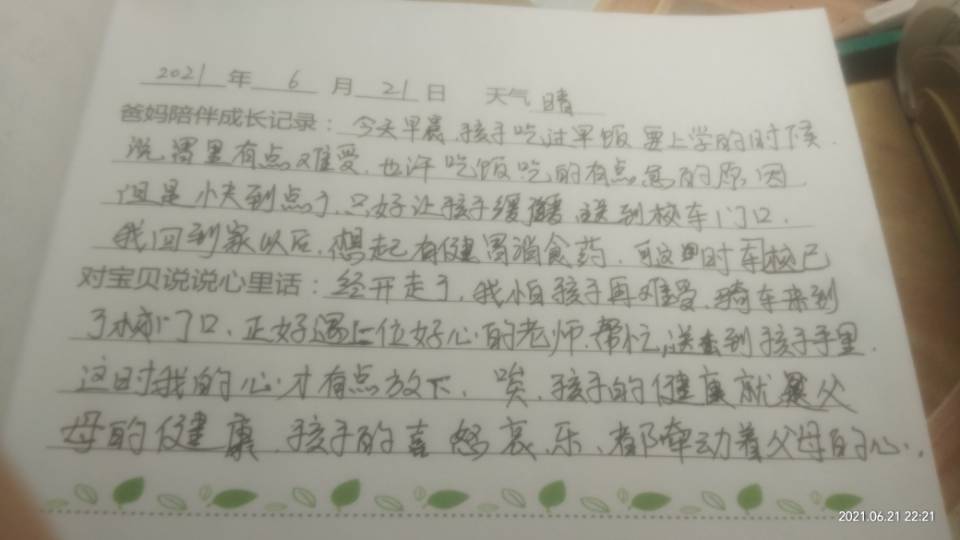 2021 年 6 月 21 日 天气 晴
爸妈陪伴成长记录：今天早晨，孩子吃过早饭要上学的时候，
说胃里有点难受，也许吃饭吃的有点急的原因，
但是快到点了，只好让孩子缓缓，送到校车门口，
我回到家以后，想起有健胃消食药，可这时校已
对宝贝说说心里话：经开走了，我怕孩子再难受，骑车来到
了校门口，正好遇上一位好心的老师帮忙，送到孩子手里，
这时我的心才有点放下，唉，孩子的健康就是父
母的健康，孩子的喜怒哀乐，都牵动着父母的心。
2021.06.21 22:21